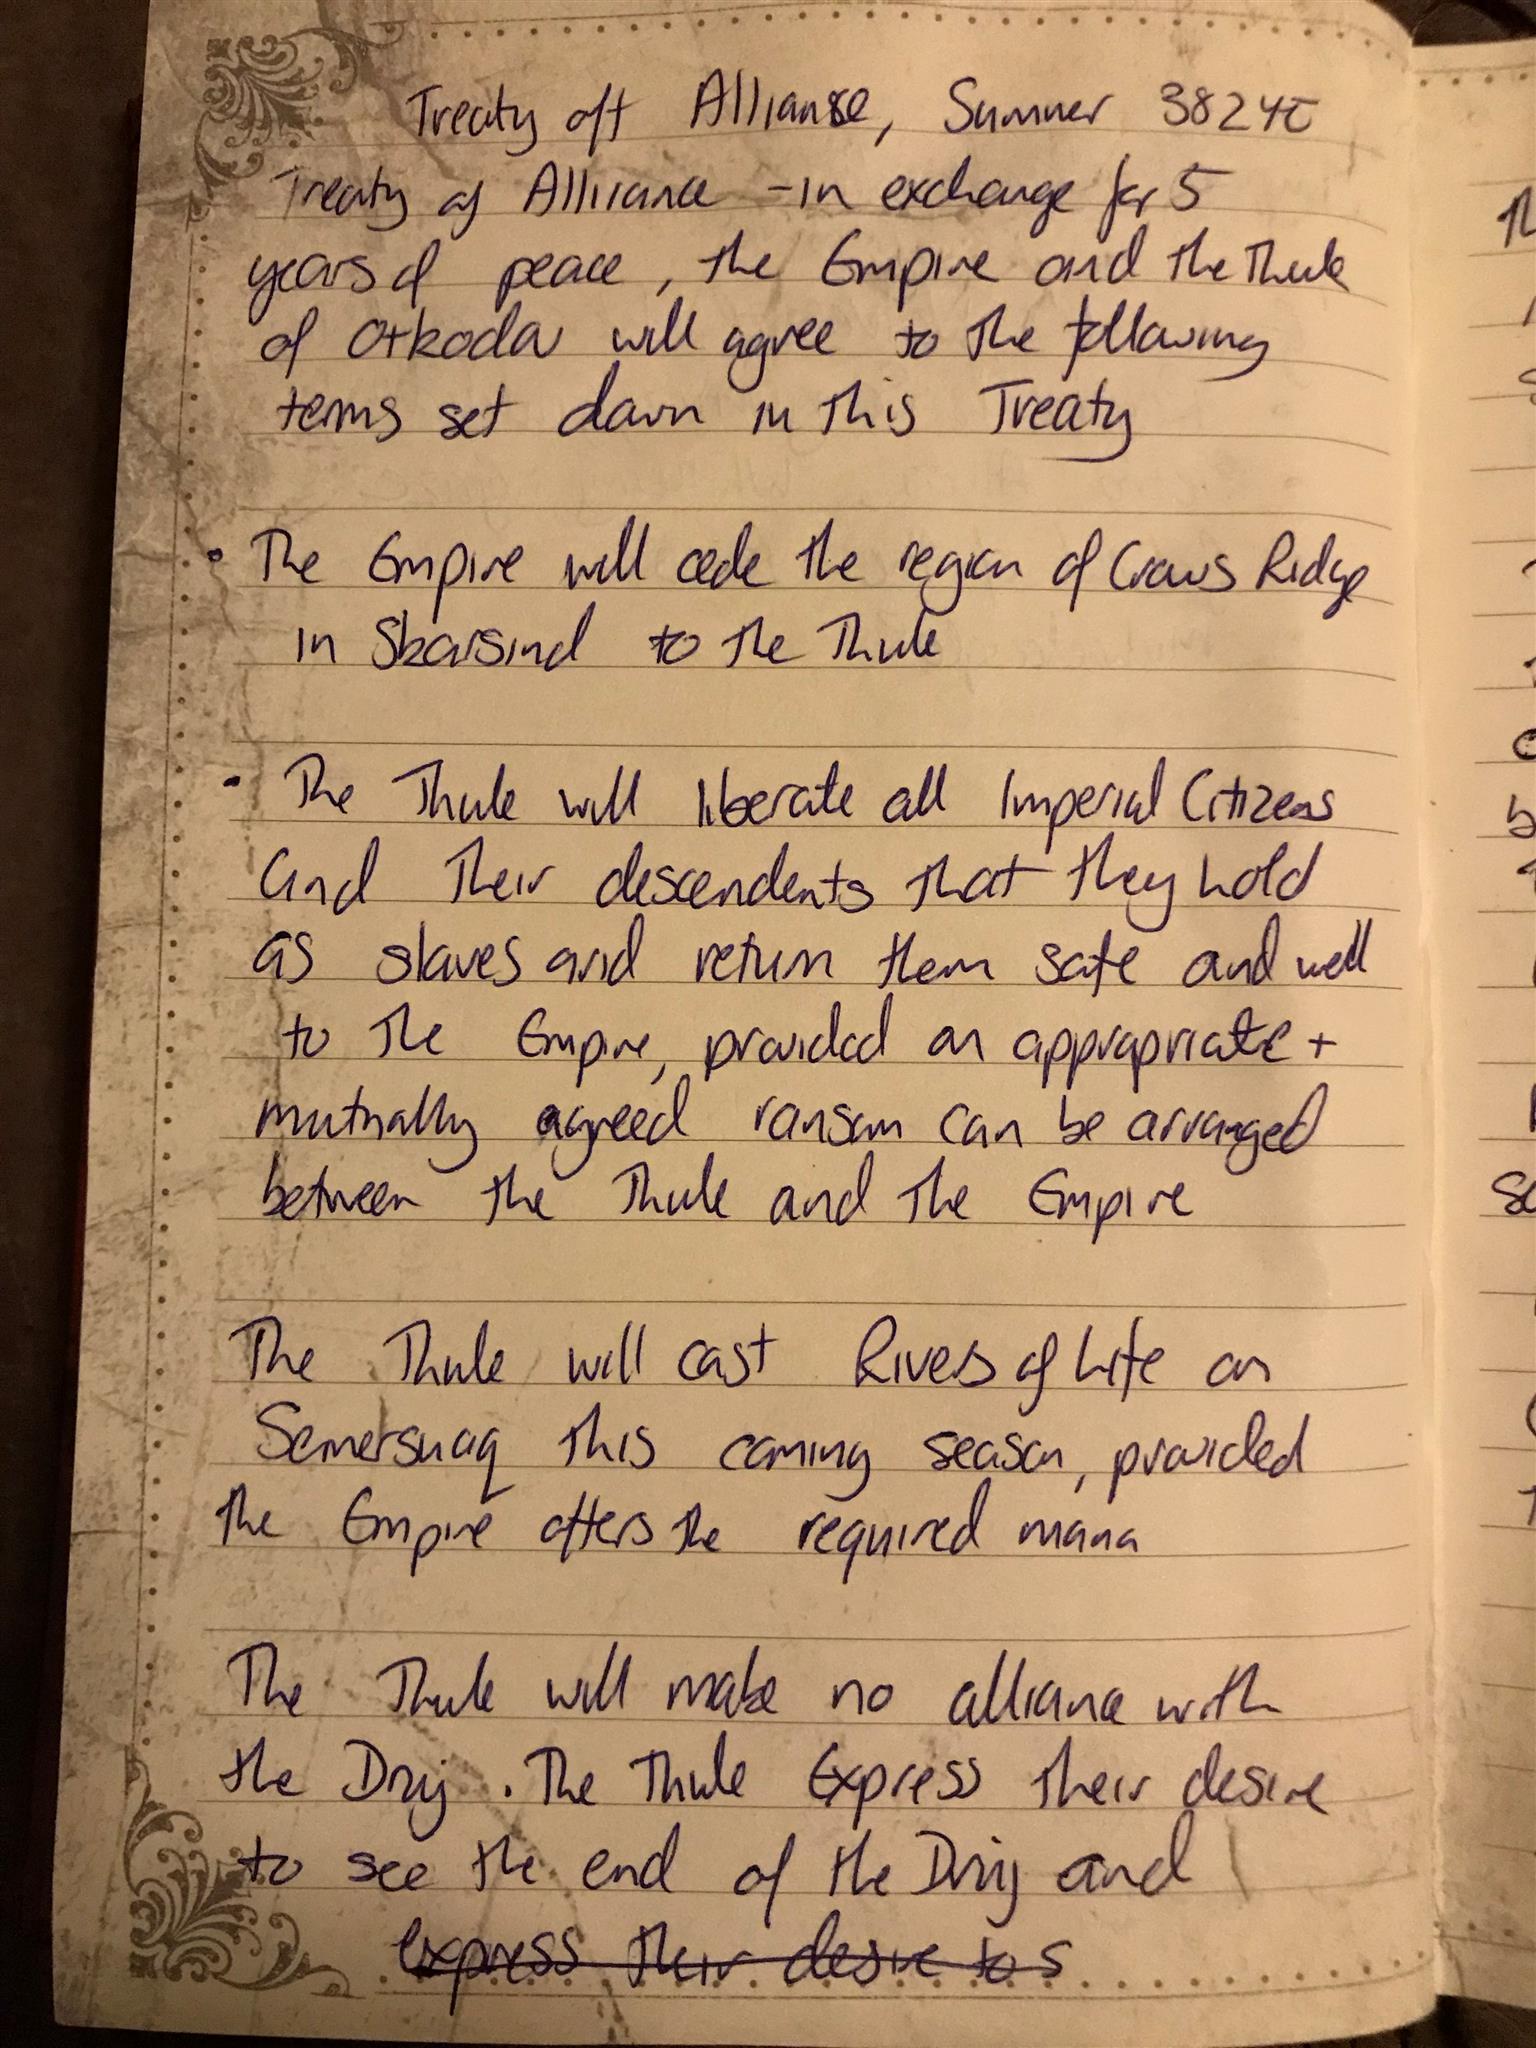 Treaty oft Allianse, Summer 382YE
Treaty of Alliance - in exchange for 5
years of peace, the Empire and the Thule
of Otkodov will agree to the following
terms set down in this Treaty
• The Empire will cede the region of Crows Ridge
in Skarsind to the Thule
• The Thule will liberate all Imperial Citizens
and their descendents that they hold
as slaves and return them safe and well
to the Empire, provided an appropriate +
mutually agreed ransom can be arranged
between the Thule and the Empire
The Thule will cast Rivers of Life on
Sermersuaq this coming season, provided
the Empire offers the required mana
The Thule will make no alliance with
the Druj. The Thule Express their desire
to see the end of the Druj and
express their desire to s